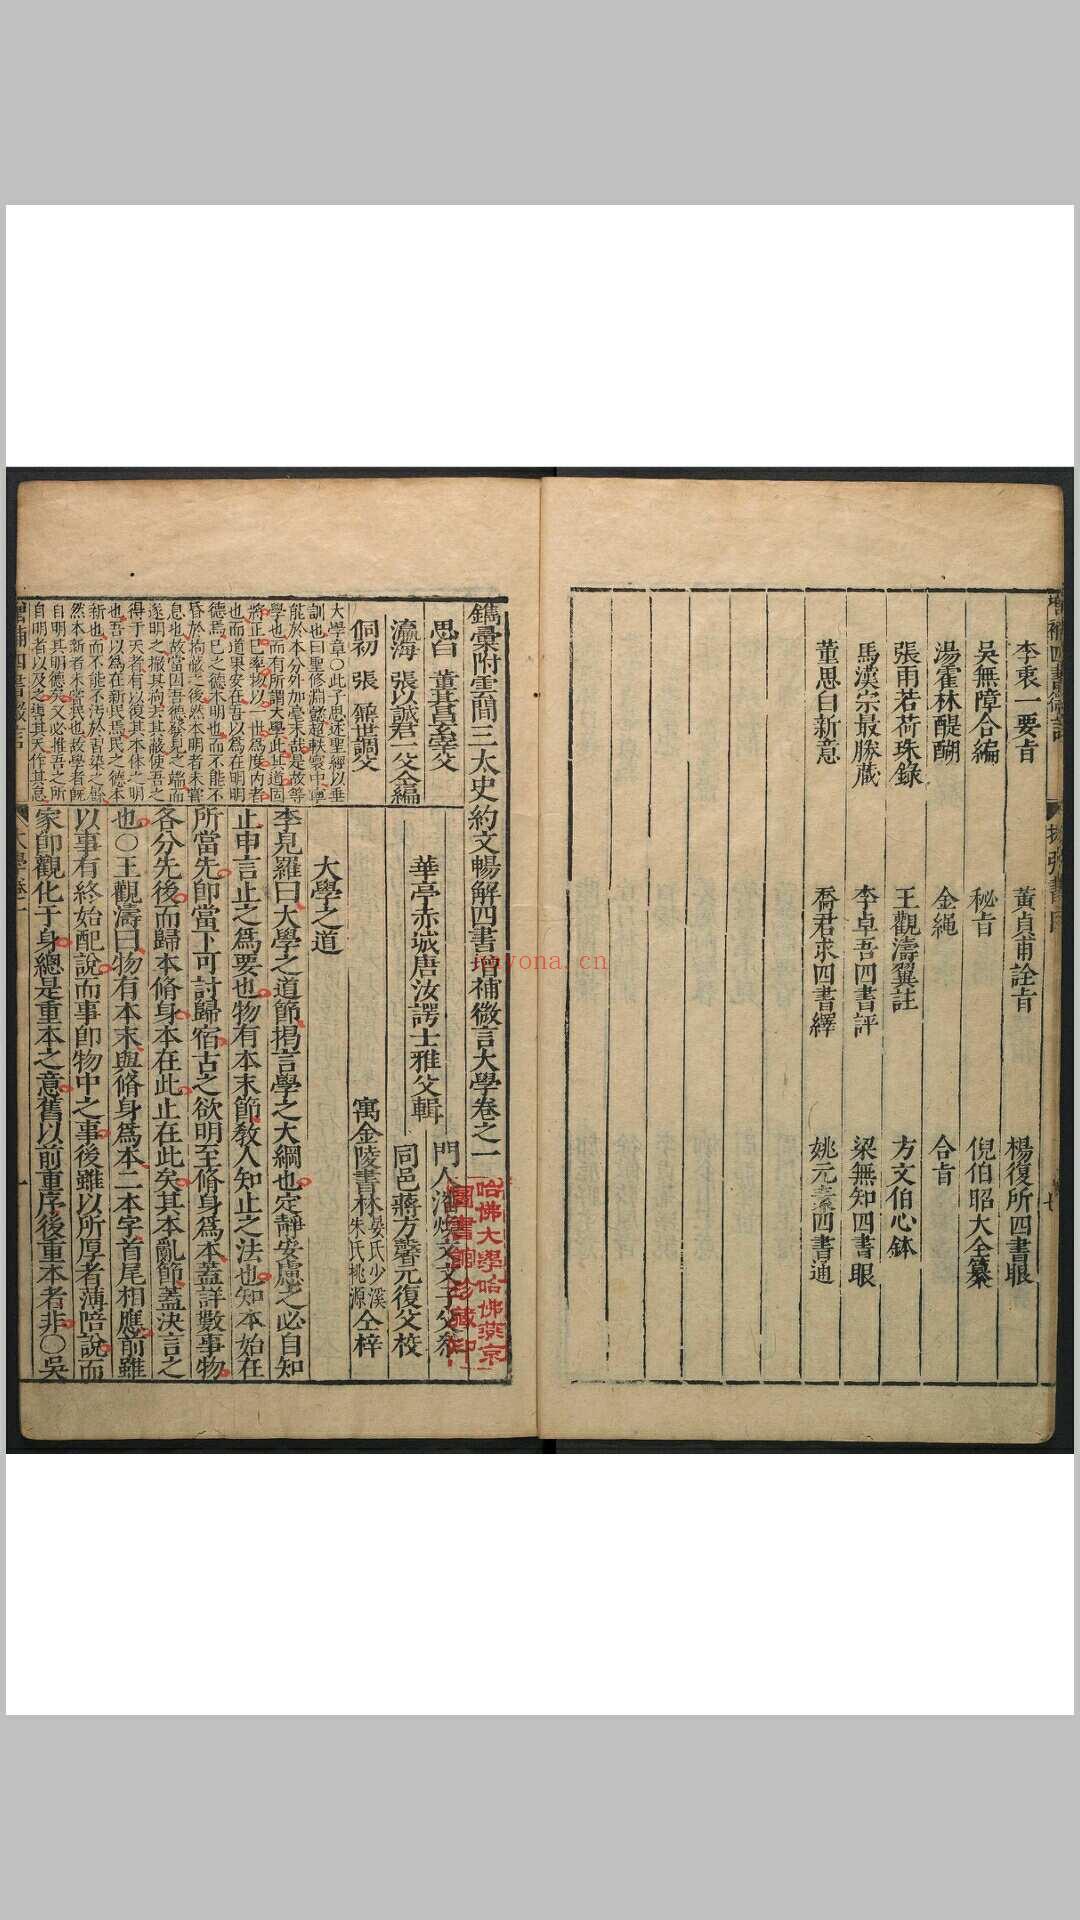 李衷一要旨
黃貞甫詮旨
楊復所四書眼
吳無障合編
秘旨
倪伯昭大全纂
湯霍林醍醐
金繩
合旨
張雨若荷珠錄
王觀濤翼註
方文伯心鉢
馬漢宗最勝藏
李卓吾四書評
梁無知四書眼
董思白新意
喬君求四書繹
姚元素四書通
鐫彙附雲間三太史約文暢解四書增補微言大學卷之一
思白 董其昌玄宰父
瀛海 張以誠君一父仝編
侗初 張鼐世調父
華亭赤城唐汝諤士雅父輯
門人潘煥文文子父叅
同邑蔣方馨元復父校
寓金陵書林晏氏少溪朱氏桃源仝梓
大學之道
大學章○此子思述聖經以垂
訓也曰聖修淵懿超軼寰中寧
能於本分外加毫末哉是故等
學也而有所謂大學此其道固
將正己率物以一世為度內者
也而道果安在吾以為在明明
德焉已之德未明也而不能不
昏於拘蔽之後然本明者未嘗
息也故當因吾德發見之端而
遂明之撤其拘去其蔽使吾之
得于天者有以復其本体之明
也吾以為在新民焉民之德本
新也而不能不汚於舊染之餘
然本新者未嘗民也故學者旣
自明其明德矣又必推吾之所
自明者以及之轉其天作其息
李見羅曰大學之道節揭言學之大綱也定靜安慮之必自知
止申言止之爲要也物有本末節敎人知止之法也知本始在
所當先卽當下可討歸宿古之欲明至脩身爲本蓋詳數事物
各分先後而歸本脩身本在此止在此矣其本亂節蓋決言之
也○王觀濤曰物有本末與脩身爲本二本字首尾相應前雖
以事有終始配說而事卽物中之事後雖以所厚者薄陪說而
家卽觀化于身總是重本之意舊以前重序後重本者非○吳
大學卷一
一
哈佛大學哈佛燕京圖書館珍藏印
nayona.cn